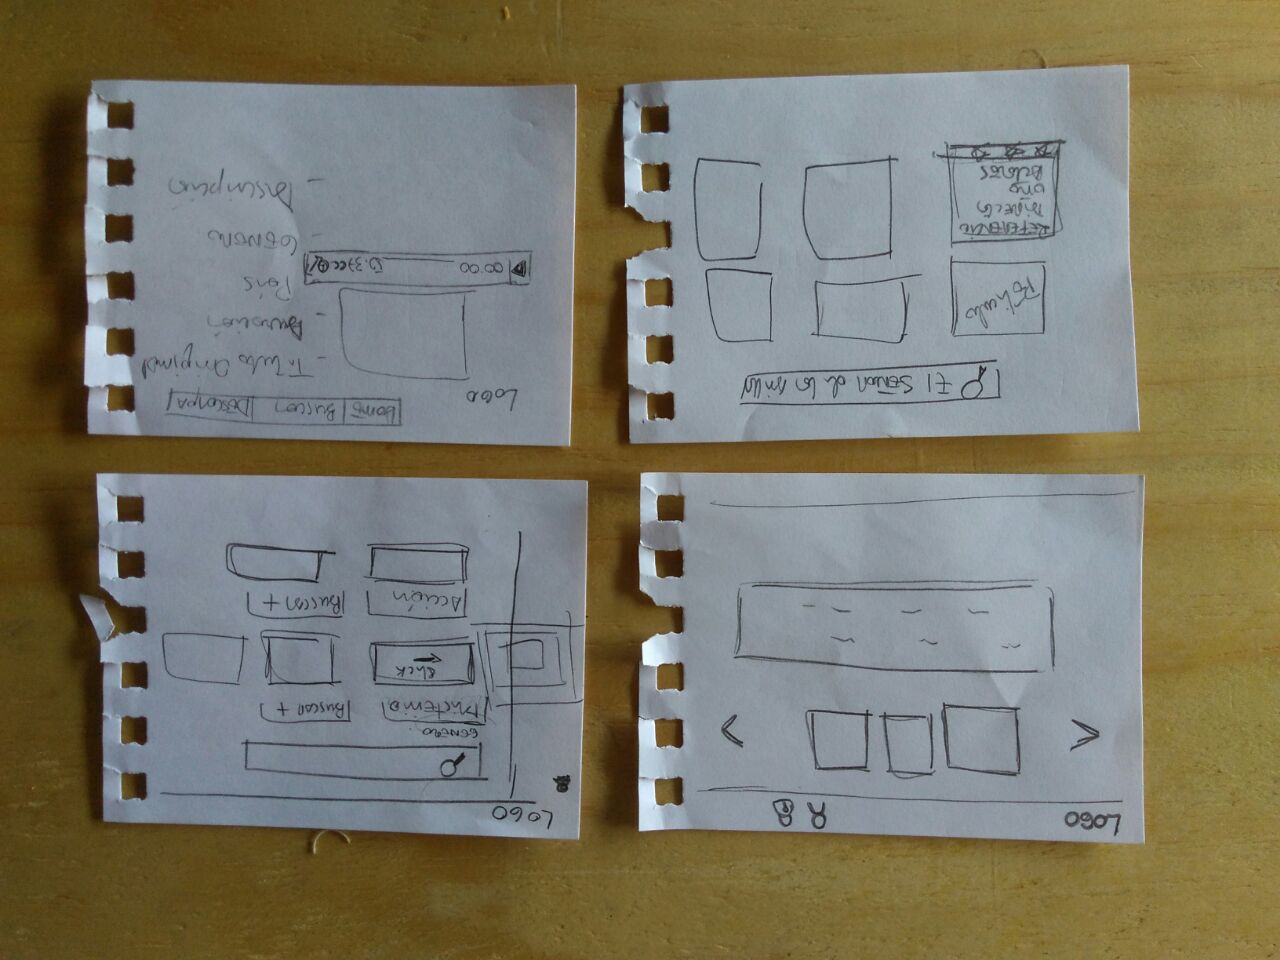 LOGO
LOGO
GENERO
Misterio
Buscar +
Click
Acción
Buscar +
El SEÑOR de los anillos
Película
REFERENCIA
DIRECTOR
año
Actores
LOGO
HOME
Buscar
DESCARGA
- Titulo Original
- Duración
País
- GENERO
- Discripción
00:00